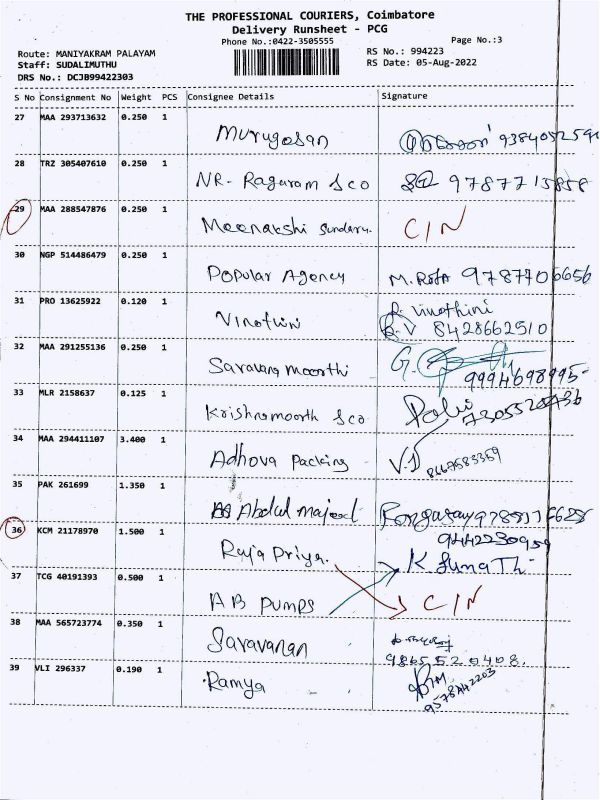 THE PROFESSIONAL COURIERS, Coimbatore
Delivery Runsheet - PCG
Phone No.:0422-3505555 Page No.:3
Route: MANIYAKRAM PALAYAM RS No.: 994223
Staff: SUDALIMUTHU RS Date: 05-Aug-2022
DRS No.: DCJB99422303
S No Consignment No Weight PCS Consignee Details Signature
27 MAA 293713632 0.250 1 Murugesan
28 TRZ 305407610 0.250 1 NR- Raguram & co 9787715858
29 MAA 288547876 0.250 1 Meenakshi Sundaru. C/N
30 NGP 514486479 0.250 1 Popular Agency 9787706656
31 PRO 13625922 0.120 1 Vinothini R. Vinothini
R.V 8428662510
32 MAA 291255136 0.250 1 Saravana moorthi G.
9994698995
33 MLR 2158637 0.125 1 Krishnamoorth & co
34 MAA 294411107 3.400 1 Adhova Packing V.D 8667583359
35 PAK 261699 1.350 1 Abdul majeed
36 KCM 21178970 1.500 1 Raja Priya. 9442230959
K. Suma Th
37 TCG 40191393 0.500 1 AB Pumps C/N
38 MAA 565723774 0.350 1 Saravanan
9865520408.
39 VLI 296337 0.190 1 Ramya